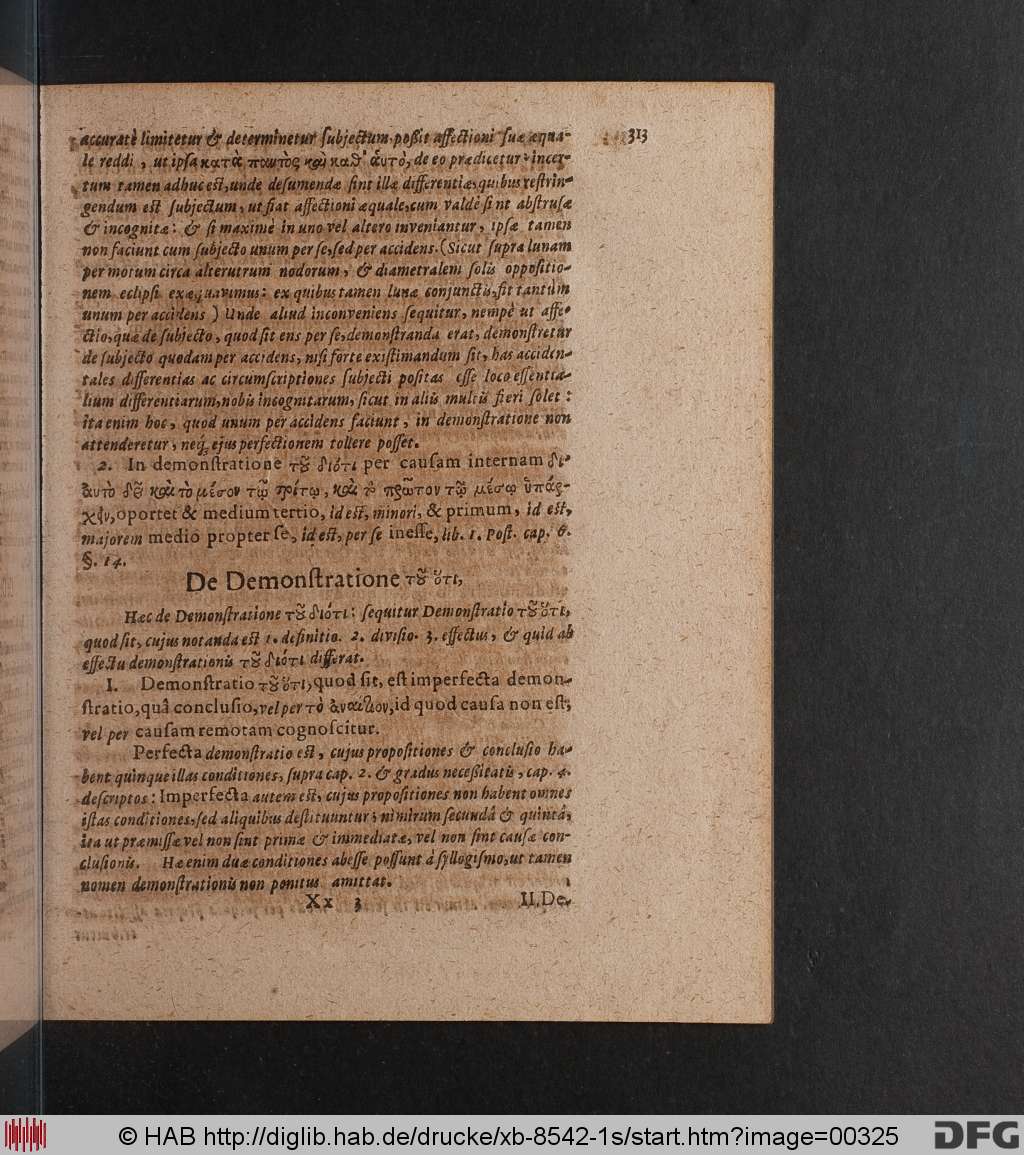 313
accuratè limitetur & determinetur subjectum. poßit affectioni suæ æqua-
le reddi, ut ipsa κατὰ παντὸς καὶ καθ' ἁυτό, de eo prædicetur: incer-
tum tamen adhuc est, unde desumendæ sint illæ differentiæ, quibus restrin-
gendum est subjectum, ut fiat affectioni æquale, cum valdè sint abstrusæ
& incognitæ: & si maximè in uno vel altero inveniantur, ipsæ tamen
non faciunt cum subjecto unum per se, sed per accidens. (Sicut supra lunam
per motum circa alterutrum nodorum, & diametralem solis oppositio-
nem eclipsi exæquavimus: ex quibus tamen lunæ conjunctis, fit tantùm
unum per accidens) Unde aliud inconveniens sequitur, nempè ut affe-
ctio, quæ de subjecto, quod sit ens per se, demonstranda erat, demonstretur
de subjecto quodam per accidens, nisi forte existimandum sit, has acciden-
tales differentias ac circumscriptiones subjecti positas esse loco essentia-
lium differentiarum, nobis incognitarum, sicut in aliis multis fieri solet:
ita enim hoc, quod unum per accidens faciunt, in demonstratione non
attenderetur, neq; ejus perfectionem tollere posset.
2. In demonstratione τοῦ διότι per causam internam δι-
ἁυτὸ δεῖ καὶ τὸ μέσον τῷ τρίτῳ, καὶ τὸ πρῶτον τῷ μέσῳ ὑπάρ-
χειν, oportet & medium tertio, id est, minori, & primum, id est,
majorem medio propter se, id est, per se inesse, lib. 1. Post. cap. 6.
§. 14.
De Demonstratione τοῦ ὅτι,
Hæc de Demonstratione τοῦ διότι: sequitur Demonstratio τοῦ ὅτι,
quod sit, cujus notanda est 1. definitio. 2. divisio. 3. effectus, & quid ab
effectu demonstrationis τοῦ διότι differat.
I. Demonstratio τοῦ ὅτι, quod sit, est imperfecta demon-
stratio, quâ conclusio, vel per τὸ ἀναίτιον, id quod causa non est;
vel per causam remotam cognoscitur.
Perfecta demonstratio est, cujus propositiones & conclusio ha-
bent quinque illas conditiones, supra cap. 2. & gradus necessitatis, cap. 4.
descriptos: Imperfecta autem est, cujus propositiones non habent omnes
istas conditiones, sed aliquibus destituuntur; nimirum secundâ & quintâ,
ita ut præmissæ vel non sint primæ & immediatæ, vel non sint causæ con-
clusionis. Hæ enim duæ conditiones abesse possunt à syllogismo, ut tamen
nomen demonstrationis non penitus amittat.
Xx 3 II. De-
© HAB http://diglib.hab.de/drucke/xb-8542-1s/start.htm?image=00325
DFG